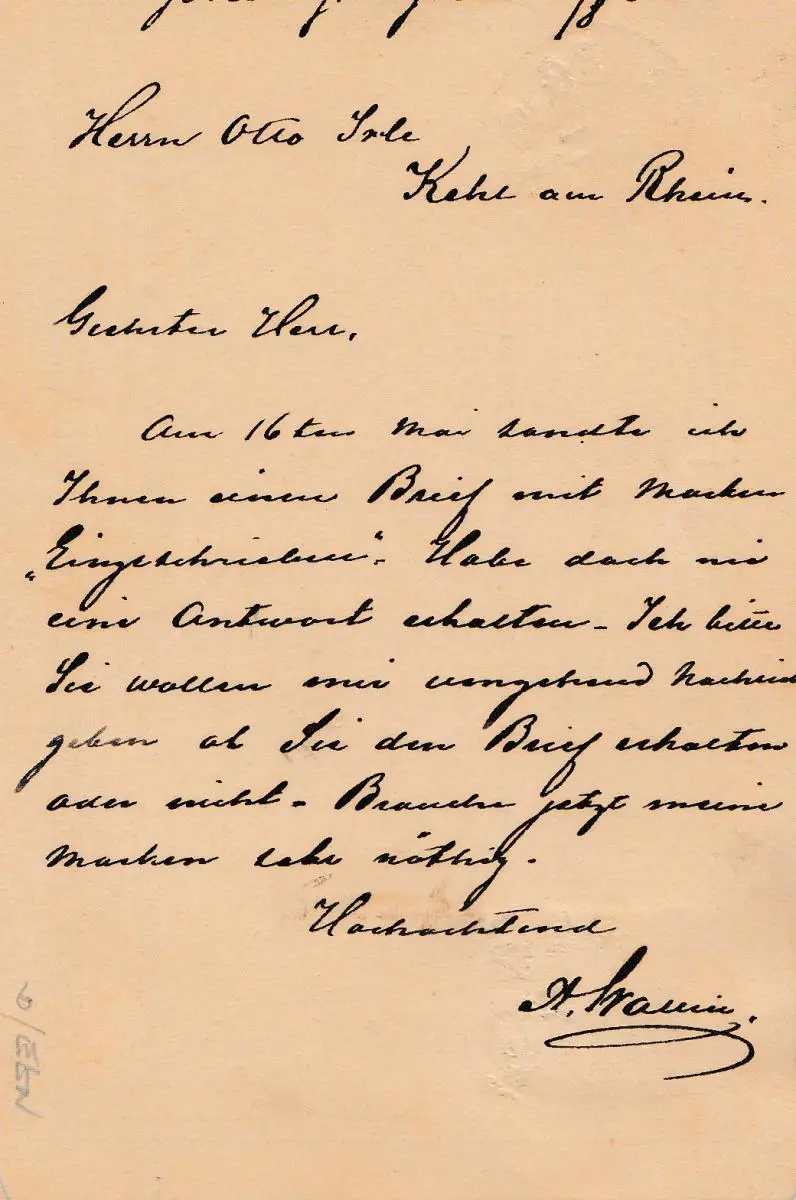 Herrn Otto Irle
Kehl am Rhein.
Geehrter Herr,
Am 16ten Mai sandte ich
Ihnen einen Brief mit Marken
„Eingeschrieben“. Habe doch nie
eine Antwort erhalten – Ich bitte
Sie wollen mir umgehend Nachricht
geben ob Sie den Brief erhalten
oder nicht – Brauche jetzt meine
Marken sehr nöthig.
Hochachtend
A. Wallin.